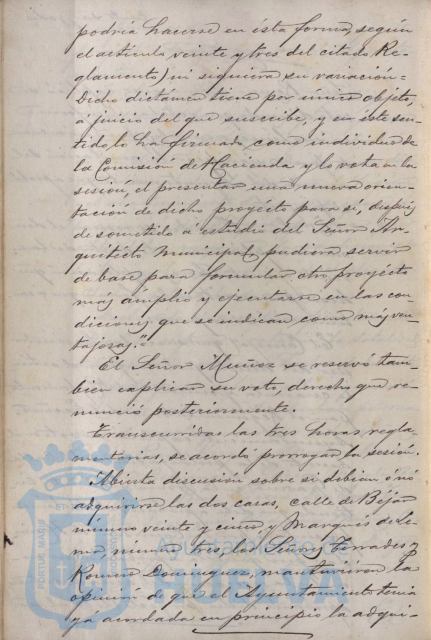 podría hacerse en ésta forma, según
el artículo veinte y tres del citado Re-
glamento) ni siquiera su variación=
Dicho dictámen tiene por único objeto,
á juicio del que suscribe, y en éste sen-
tido, lo ha firmado, como individuo de
la Comisión de Hacienda y lo vota en la
sesión, el presentar una nueva orien-
tación de dicho proyécto para si, después
de sometido á estudio del Señor Ar-
quitécto Municipal, pudiera servir
de base para formular otro proyécto
más ámplio y ejecutarse en las con-
diciones que se indican como más ven-
tajosas."
El Señor Muñoz se reservó tam-
bien explicar su voto, derecho que re-
nunció posteriormente.
Transcurridas las tres horas regla-
mentarias, se acordó prorrogar la sesión.
Abierta discusión sobre si debian ó nó
adquirirse las dos casas, calle de Béjar
número veinte y cinco y Marqués de Le-
ma, número tres, los Señores Terrades y
Romero Dominguez, mantuvieron la
opinión de que el Ayuntamiento tenia
ya acordada en principio la adqui-
Ayuntamiento de
HUELVA
PORTUS MARIS
ET